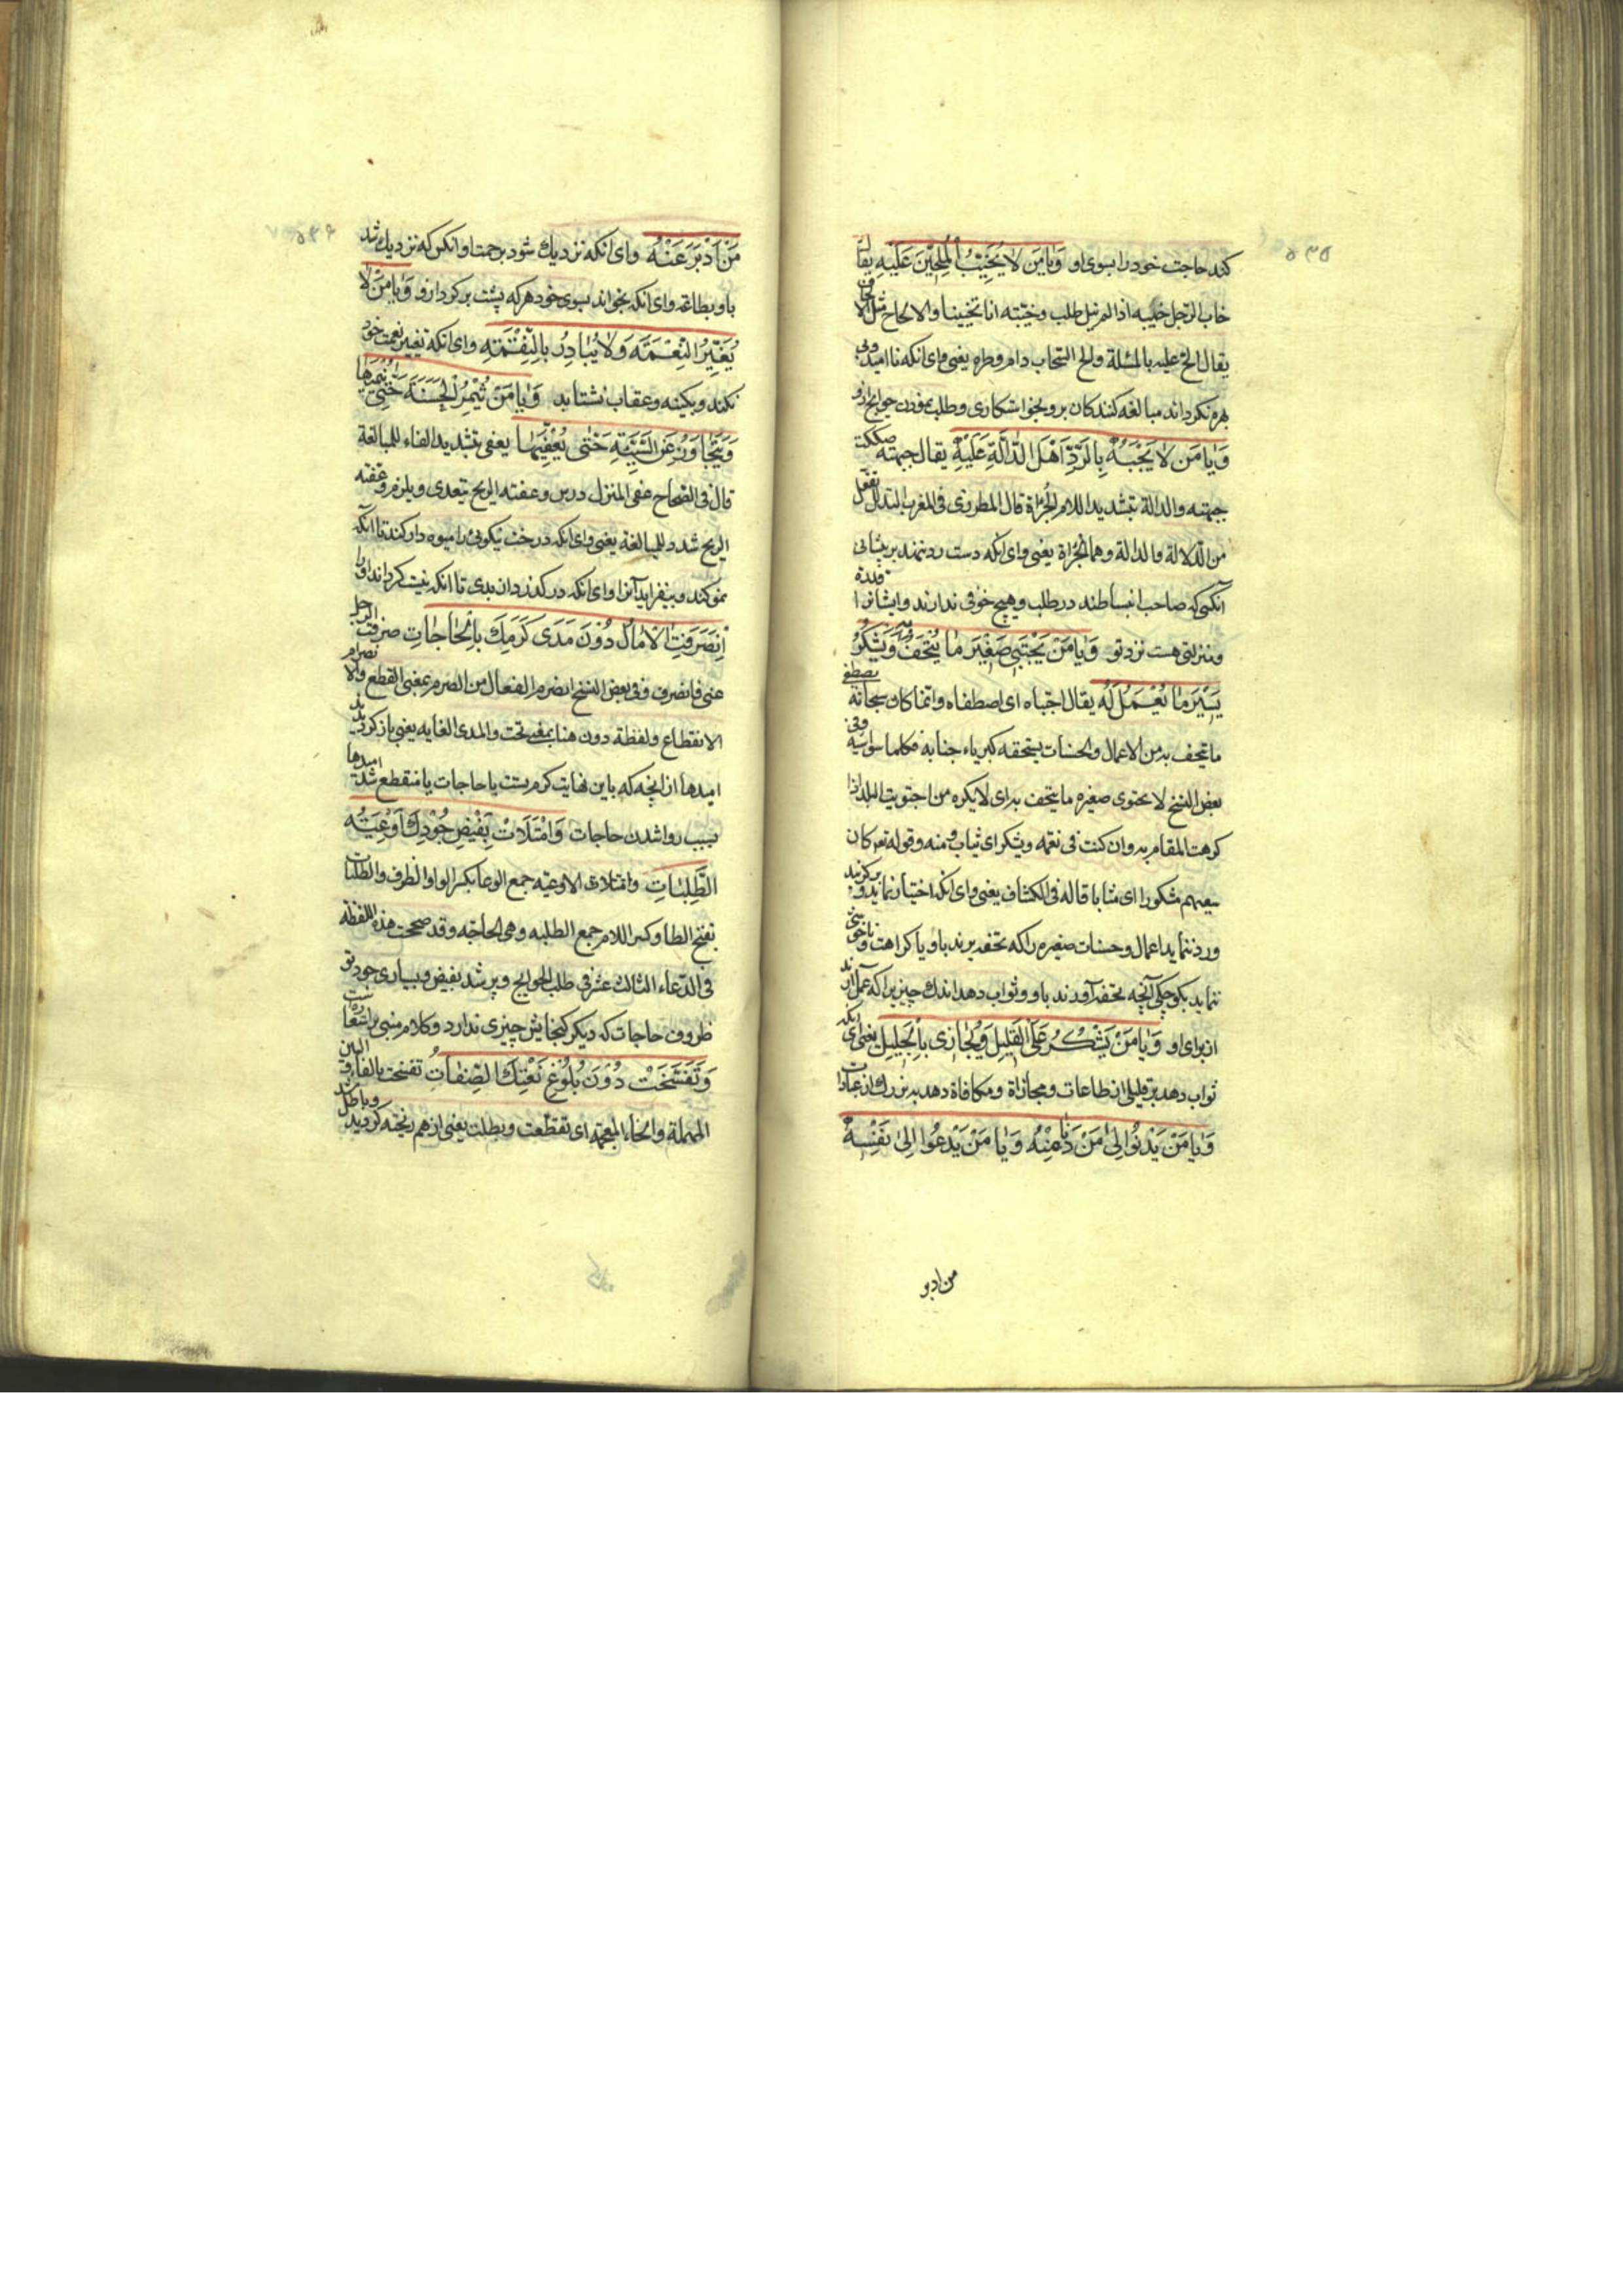 کنند حاجت خود را بسوی او وَیَا مَن لَا یُخَیِّبُ الْمُلِحِّیْنَ عَلَیْهِ یقال
خاب الرجل خیبه اذا لم ینل طلب وخیّبته انا تخییبا والالحاح مثل الالحاف
یقال الح علیه بالمسئلة والح السحاب دام مطره یعنی وای انکه نا امید وبی
بهره نکرداند مبالغه کنندکان بر وبخواستکاری وطلب نمودن حوایج از و
وَیَا مَن لَا یَجْبَهُ بِالرَّدِّ اَهْلَ الدَّالَّةِ عَلَیْهِ یقال جبهته صککت
جبهته والدالة بتشدید اللام الجُرأة قال المطرزی فی المغرب التدلل تفعّل
من الدّلال والدالة وهما الجُرأة یعنی وای انکه دست رد ننهد بر پیشانی
آنکسی که صاحب انبساطند در طلب وهیچ خوفی ندارند وایشانرا قدری
ومنزلتی هست نزد تو وَیَا مَنْ یَجْتَبِی صَغِیْرَ مَا یُتْحَفُ بِهِ وَیَشْکُرُ
یَسِیْرَ مَا یُعْمَلُ لَهُ یقال اجتباه ای اصطفاه وانما کان سبحانه یصطفی
ما یتحف به من الاعمال والحسنات یستحقه کبریاء جنابه فکلما سواسیه وفی
بعض النسخ لا یجتوی صغیره ما یتحف به ای لا یکره من اجتویت البلد اذا
کرهت المقام به وان کنت فی نعمه ویشکر ای یثاب ومنه وقوله تعم کان
سعیهم مشکورا ای مثابا قاله فی الکشاف یعنی وای انکه اختیار نماید و برکزیند
ورد ننماید اعمال وحسنات صغیره را که تحفه برند باو یا کراهت وناخوشی
ننماید بکوچکی آنچه تحفه آوردند باو وثواب دهد اندک چیزیرا که عمل آرند
از برای او وَیَا مَنْ یَشْکُرُ عَلَی الْقَلِیْلِ وَیُجَازِی بِالْجَلِیْلِ یعنی ای انکه
ثواب دهد بر قلیلی از طاعات ومجازاة ومکافاة دهد به بزرک از عبادات
وَیَا مَنْ یَدْنُوا اِلیٰ مَنْ دَنَا مِنْهُ وَیَا مَنْ یَدْعُوا اِلیٰ نَفْسِهِ
من ادبر
مَنْ اَدْبَرَ عَنْهُ وای انکه نزدیک شود برحمت او انکس که نزدیک شد
باو بطاعه وای انکه بخواند بسوی خود هر که پشت بر کرد ازو وَیَا مَنْ لَا
یُغَیِّرُ النِّعْمَةَ وَلَا یُبَادِرُ بِالنَّقِمَةِ وای انکه تغییر نعمت خود
نکند وبکینه وعقاب نشتابد وَیَا مَنْ یُثْمِرُ الْحَسَنَةَ حَتّٰی یُنْمِیَهَا
وَیَتَجَاوَزُ عَنِ السَّیِّئَةِ حَتّٰی یُعَفِّیَهَا یعفی بتشدید الفاء للمبالغة
قال فی الصحاح عفی المنزل درس وعفته الریح یتعدی ویلزم وعفته
الریح شدد للمبالغة یعنی وای انکه درخت نیکوئی را میوه دار کند تا آنکه
نمو کند وبیفزاید آنرا وای انکه در کذرد از بدی تا انکه نیست کرداند اورا
اِنْصَرَفَتِ الْاٰمَالُ دُوْنَ مَدَی کَرَمِكَ بِالْحَاجَاتِ صرفت الرجل
عنی فانصرف وفی بعض النسخ انصرم انفعال من الصرم بمعنی القطع والانصرام
الانقطاع ولفظة دون هنا بمعنی تحت والمدی الغایه یعنی باز کردیدند
امیدها از انچه که باین نهایت کرم تست با حاجات یا منقطع شد امیدها
بسبب روا شدن حاجات وَامْتَلَأَتْ بِفَیْضِ جُوْدِكَ اَوْعِیَةُ
الطَّلِبَاتِ وامتلات الاوعیه جمع الوعا بکسر الواو الظرف والطلبات
بفتح الطا وکسر اللام جمع الطلبه وهی الحاجه وقد صححت هذه اللفظة
فی الدّعاء الثالث عشر فی طلب الحوایج وپر شد بفیض وبسیاری جود تو
ظروف حاجات که دیکر کنجایش چیزی ندارد وکلام مبنی بر استعاره است
وَتَفَسَّخَتْ دُوْنَ بُلُوْغِ نَعْتِكَ الصِّفَاتُ تفسخت بالفاء والسین
المهملة والخاء المعجمة ای تقطعت وبطلت یعنی از هم ریخته کردید وباطل شد